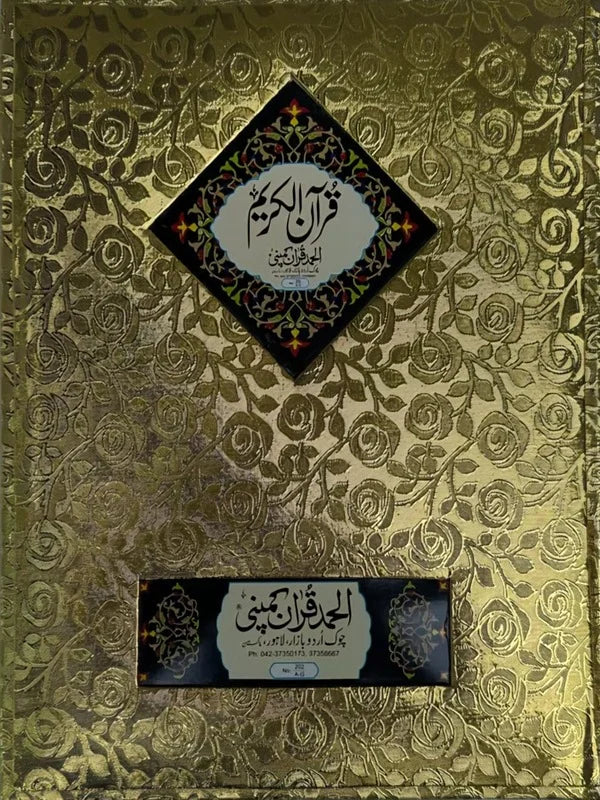 قرآن الکریم
الحمد قرآن کمپنی
الحمد قرآن کمپنی
چوک اُردو بازار، لاہور، پاکستان
Ph: 042-37350173, 37358667
No. 202
A-G